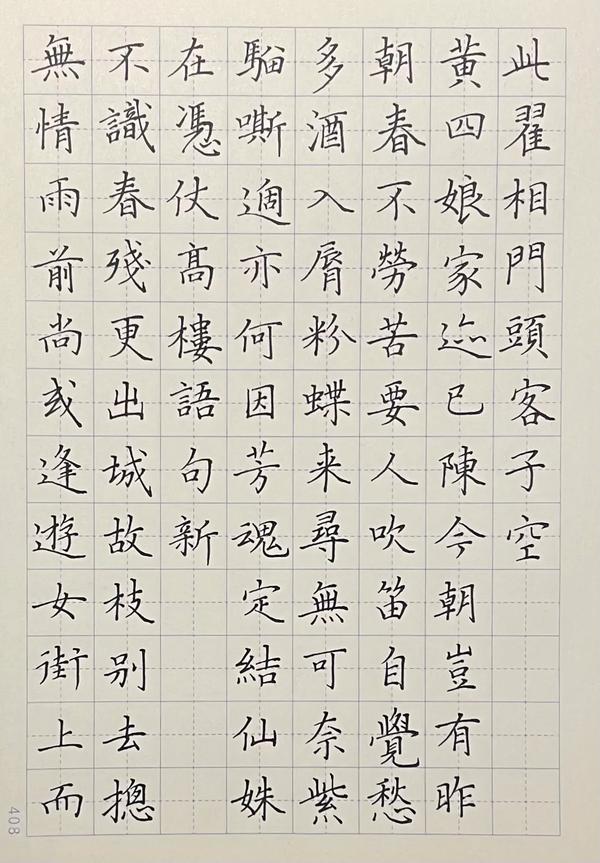 此翟相門頭客子空
黃四娘家迹已陳今朝豈有昨
朝春不勞苦要人吹笛自覺愁
多酒入脣粉蝶来尋無可奈紫
騮嘶過亦何因芳魂定結仙姝
在憑仗高樓語句新
不識春殘更出城故枝别去摠
無情雨前尚或逢遊女街上而
408